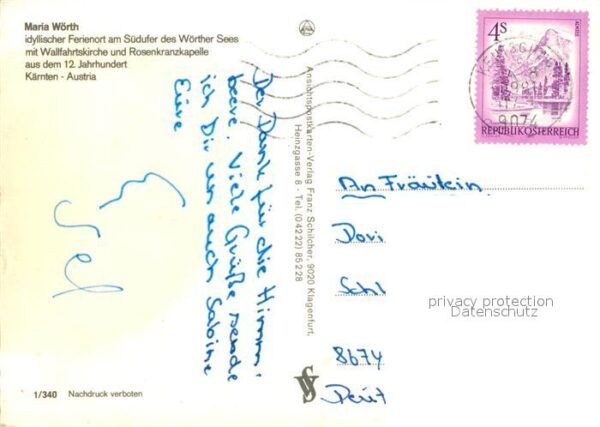 Maria Wörth
idyllischer Ferienort am Südufer des Wörther Sees
mit Wallfahrtskirche und Rosenkranzkapelle
aus dem 12. Jahrhundert
Kärnten · Austria
4S
REPUBLIK ÖSTERREICH
9074
Der Dank für die Himm-
beere. Viele Grüße sende
ich Dir und auch Sabine
Eure
Ansichtspostkarten-Verlag Franz Schilcher, 9020 Klagenfurt,
Heinzgasse 8 - Tel. (0 42 22) 85 2 28
An Fräulein
Dori
Schl
8674
privacy protection
Datenschutz
1/340 Nachdruck verboten